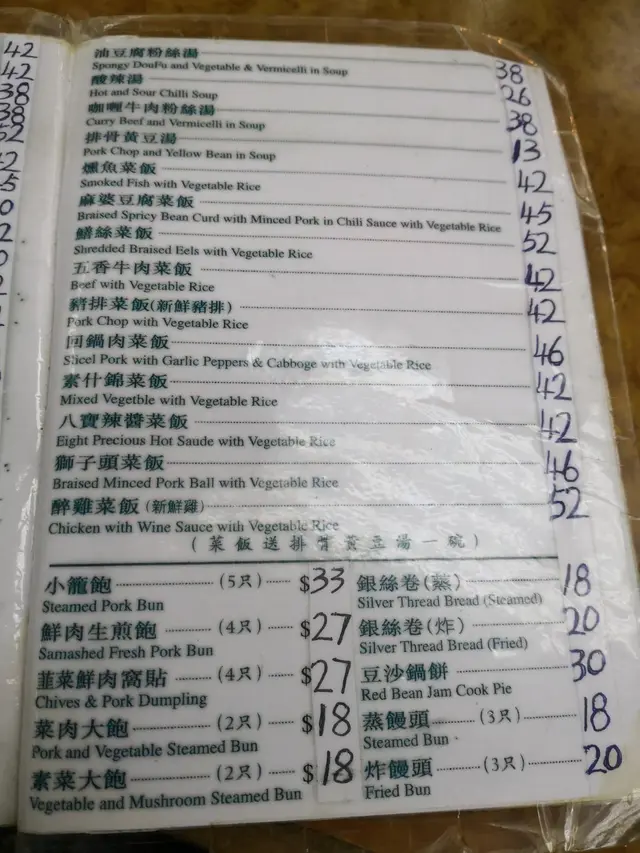 42
42
38
38
52
油豆腐粉絲湯 38
Spongy DouFu and Vegetable & Vermicelli in Soup
酸辣湯 26
Hot and Sour Chilli Soup
咖喱牛肉粉絲湯 38
Curry Beef and Vermicelli in Soup
排骨黃豆湯 13
Pork Chop and Yellow Bean in Soup
燻魚菜飯 42
Smoked Fish with Vegetable Rice
麻婆豆腐菜飯 45
Braised Spricy Bean Curd with Minced Pork in Chili Sauce with Vegetable Rice
鱔絲菜飯 52
Shredded Braised Eels with Vegetable Rice
五香牛肉菜飯 42
Beef with Vegetable Rice
豬排菜飯(新鮮豬排) 42
Pork Chop with Vegetable Rice
回鍋肉菜飯 46
Slicel Pork with Garlic Peppers & Cabboge with Vegetable Rice
素什錦菜飯 42
Mixed Vegetble with Vegetable Rice
八寶辣醬菜飯 42
Eight Precious Hot Saude with Vegetable Rice
獅子頭菜飯 46
Braised Minced Pork Ball with Vegetable Rice
醉雞菜飯(新鮮雞) 52
Chicken with Wine Sauce with Vegetable Rice
(菜飯送排骨黃豆湯一碗)
小籠飽 (5只) $33
Steamed Pork Bun
鮮肉生煎飽 (4只) $27
Samashed Fresh Pork Bun
韮菜鮮肉窩貼 (4只) $27
Chives & Pork Dumpling
菜肉大飽 (2只) $18
Pork and Vegetable Steamed Bun
素菜大飽 (2只) $18
Vegetable and Mushroom Steamed Bun
銀絲卷(蒸) 18
Silver Thread Bread (Steamed)
銀絲卷(炸) 20
Silver Thread Bread (Fried)
豆沙鍋餅 30
Red Bean Jam Cook Pie
蒸饅頭 (3只) 18
Steamed Bun
炸饅頭 (3只) 20
Fried Bun